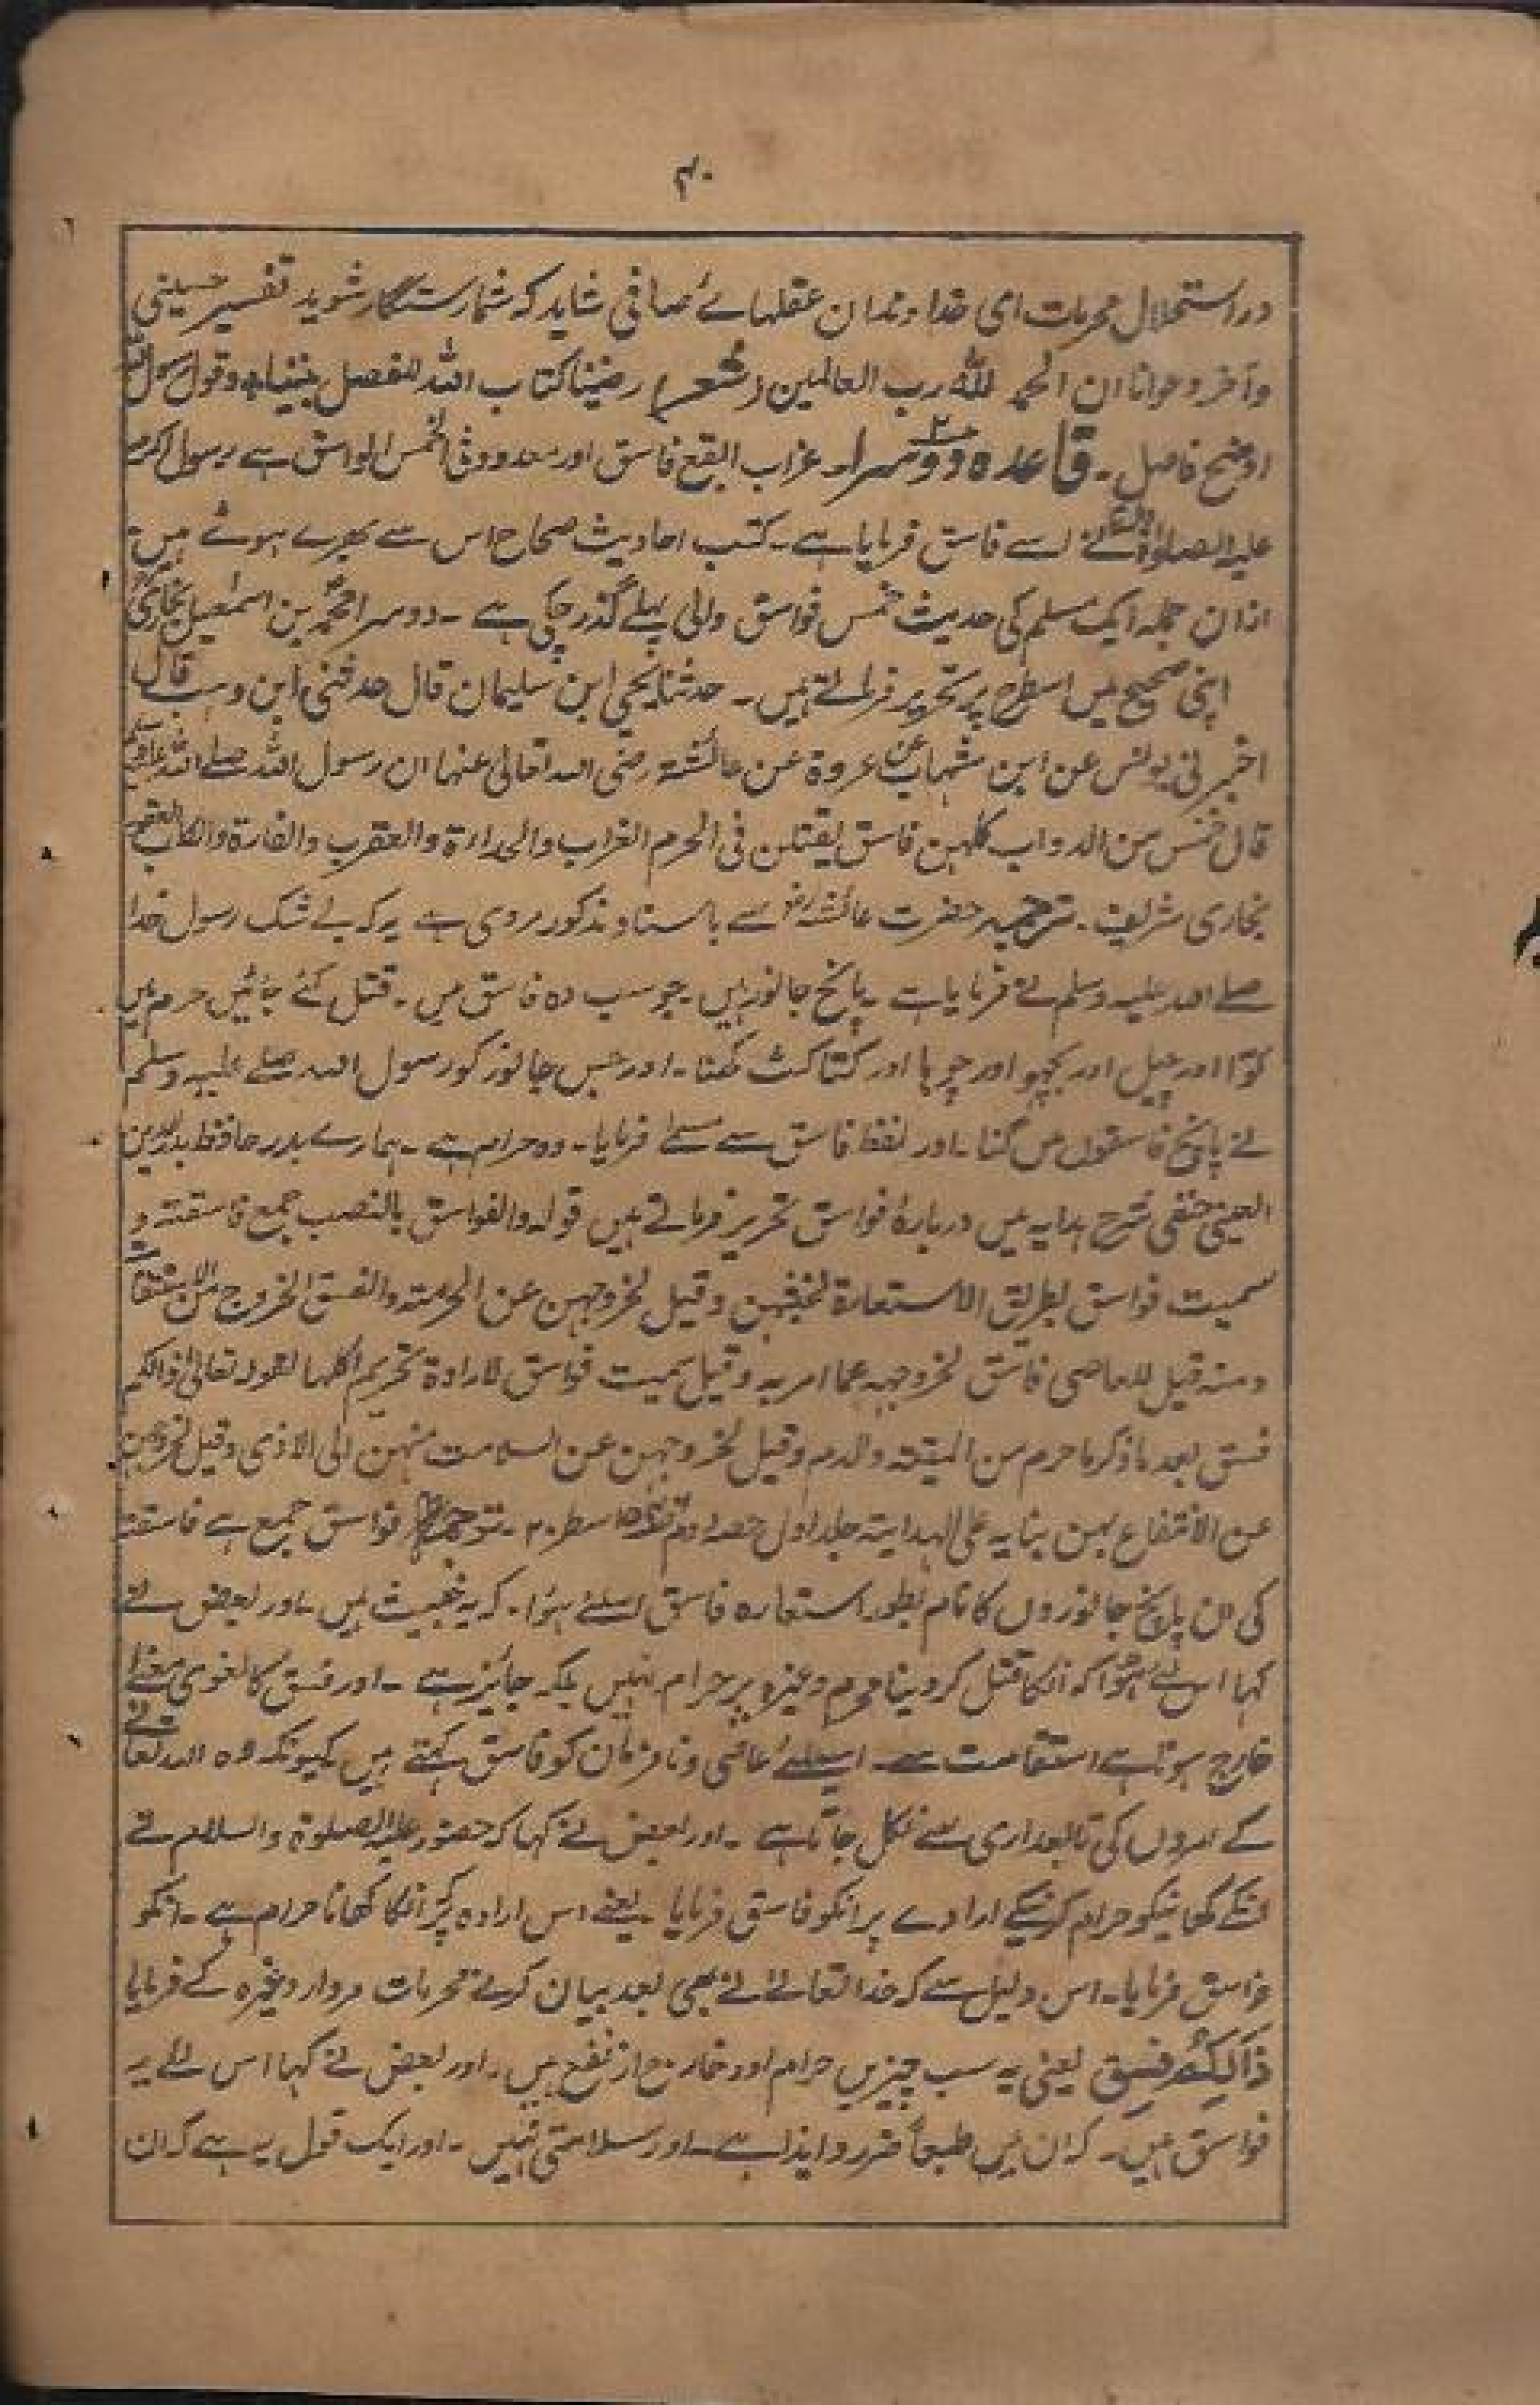 ۴۰
در استحلال محرمات ای خداوندان عقلہائے صافی شاید کہ شما رستگار شوید تفسیر حسینی
وآخر دعوانا ان الحمد للہ رب العالمین (شعر) رضینا کتاب اللہ للفصل بیننا۔ وقول رسول اللہ
اوضح فاصل۔ قاعدہ دوسرا۔ غراب ابقع فاسق اور معدود فی الخمس الفواسق ہے رسول اکرم
علیہ الصلوٰۃ والسلام نے اسے فاسق فرمایا ہے۔ کتب احادیث صحاح اس سے بھرے ہوئے ہیں
ازان جملہ ایک مسلم کی حدیث خمس فواسق والی پہلے گذر چکی ہے۔ دوسرا محمد بن اسمٰعیل بخاری
اپنی صحیح میں اسطرح پر تحریر فرماتے ہیں۔ حدثنا یحیی ابن سلیمان قال حدثنی ابن وہب قال
اخبرنی یونس عن ابن شہاب عن عروۃ عن عائشۃ رضی اللہ تعالی عنہا ان رسول اللہ صلے اللہ علیہ وسلم
قال خمس من الدواب کلہن فاسق یقتلن فی الحرم الغراب والحداۃ والعقرب والفارۃ والکلب العقور
بخاری شریف۔ ترجمہ حضرت عائشہ رض سے باسناد مذکور مروی ہے یہ کہ بے شک رسول خدا
صلے اللہ علیہ وسلم نے فرمایا ہے۔ پانچ جانور ہیں۔ جو سب وہ فاسق ہیں۔ قتل کئے جائیں حرم میں
کوّا اور چیل اور بچھو اور چوہا اور کتا کٹ کھنا۔ اور جس جانور کو رسول اللہ صلے علیہ وسلم
نے پانچ فاسقوں میں گنا۔ اور لفظ فاسق سے مسمے فرمایا۔ وہ حرام ہے۔ ہمارے بدر حافظ بدرالدین
العینی حنفی شرح ہدایہ میں دربارۂ فواسق تحریر فرماتے ہیں قولہ والفواسق بالنصب جمع فاسقتہ و
سمیت فواسق بطریق الاستعارۃ لخبثہن وقیل لخروجہن عن الحرمتہ والفسق الخروج من الاستقامۃ
ومنہ قیل للعاصی فاسق لخروجہ عما امر بہ وقیل سمیت فواسق لارادۃ تحریم اکلہا لقولہ تعالیٰ ذالکم
فسق بعد ما ذکر ما حرم من المیتتہ والدم وقیل لخروجہن عن السلامت منہن الی الاذی وقیل لخروجہن
عن الانتفاع بہن بنایہ علی الہدایتہ جلد اول حصہ دوم سطر ۲۰۔ ترجمہ فواسق جمع ہے فاسقتہ
کی ان پانچ جانوروں کا نام بطور استعارہ فاسق اسلئے ہوا۔ کہ یہ خبیث ہیں۔ اور بعض نے
کہا اس لئے ہوا کہ انکا قتل کر دینا محرم وغیرہ پر حرام نہیں بلکہ جائیز ہے۔ اور فسق کا لغوی معنے
خارج ہوتا ہے استقامت سے۔ اسیلئے عاصی ونافرمان کو فاسق کہتے ہیں کیونکہ وہ اللہ تعالٰے
کے امروں کی تابعداری سے نکل جاتا ہے۔ اور بعض نے کہا کہ حضور علیہ الصلوۃ والسلام نے
انکے کھانیکو حرام کرنیکے ارادے پر انکو فاسق فرمایا یعنے اس ارادہ پر کہ انکا کھانا حرام ہے۔ انکو
فاسق فرمایا۔ اس دلیل سے کہ خدا تعالےٰ نے بھی بعد بیان کرنے محرمات مردار وغیرہ کے فرمایا
ذَالِکُمْ فِسْقٌ یعنی یہ سب چیزیں حرام اور خارج از نفع ہیں۔ اور بعض نے کہا اس لئے یہ
فواسق ہیں۔ کہ ان میں طبعاً ضرر و ایذا ہے۔ اور سلامتی نہیں۔ اور ایک قول یہ ہے کہ ان